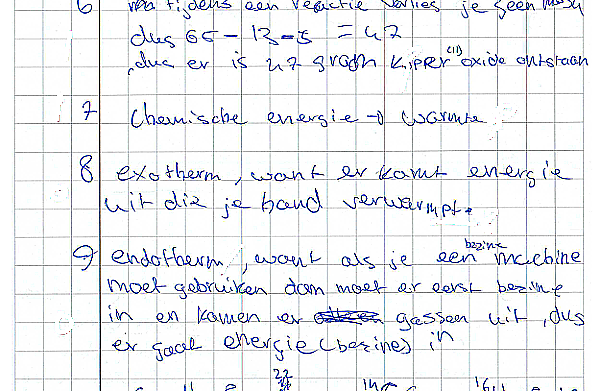 6 tijdens een reactie verlies je geen massa
dus 65 - 13 - 5 = 47
dus er is 47 gram koper (II) oxide ontstaan
7 Chemische energie → warmte
8 exotherm, want er komt energie
uit die je hand verwarmpt.
9 endotherm, want als je een bezine machine
moet gebruiken dan moet er eerst bezine
in en komen er gassen uit, dus
er gaat energie (bezine) in
22